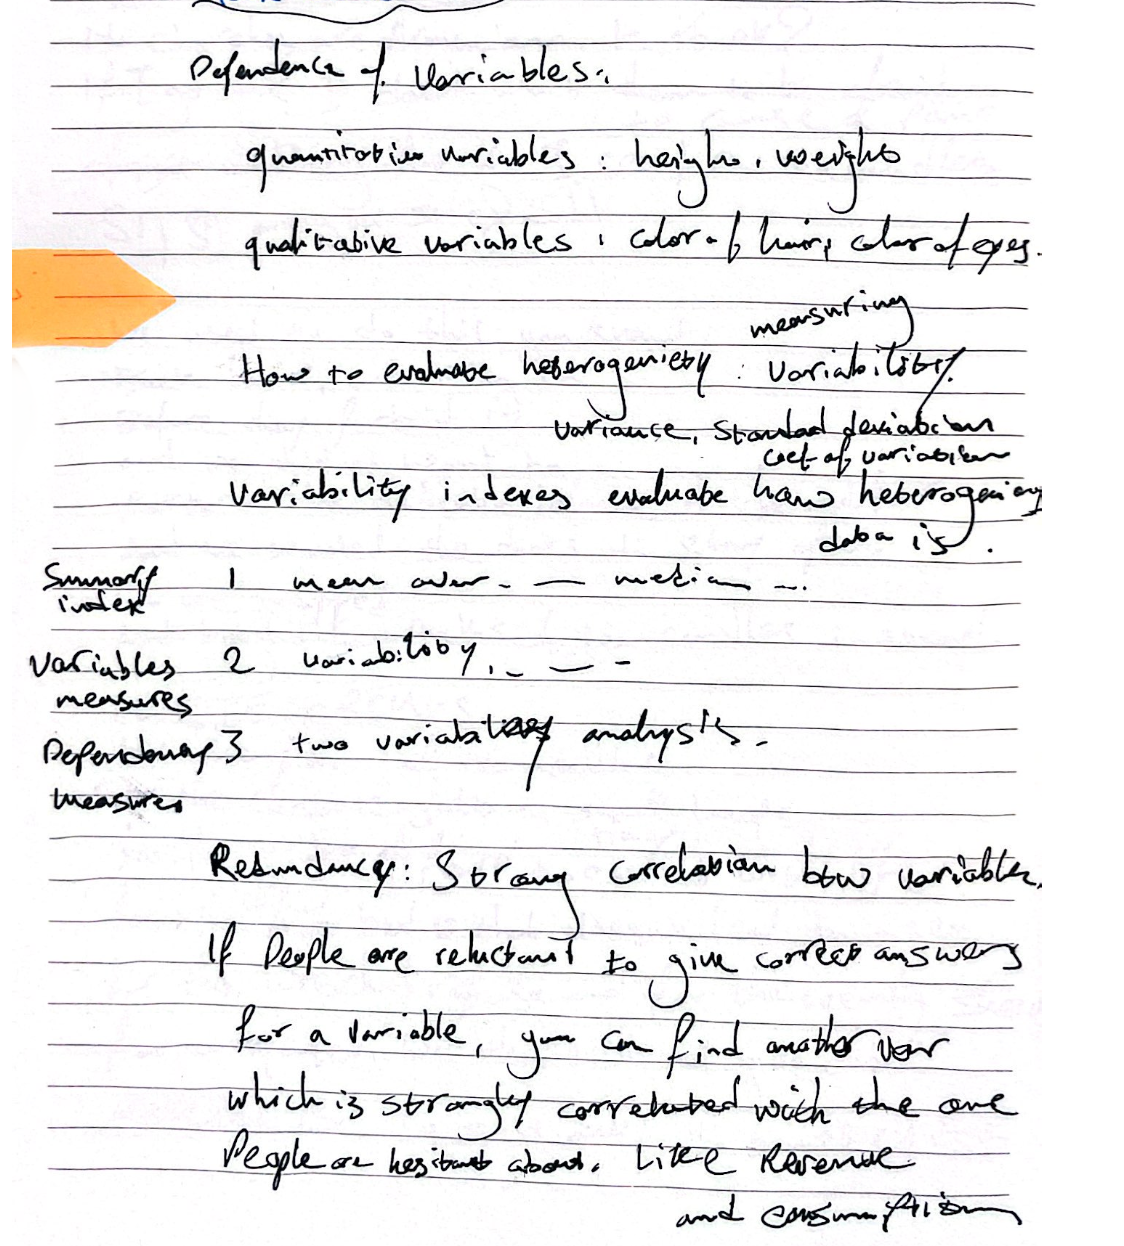 Dependence of variables:
quantitative variables : height, weight
qualitative variables : color of hair, color of eyes.
measuring
How to evaluate heterogeniety : variability.
variance, Standad deviation
coef of variation
Variability indexes evaluate how heterogeniety
data is.
Summary index 1 mean - — median ...
Variables measures 2 variability, - — -
Dependency measures 3 two variability analysis.
Redundancy: Strong correlation btw variables.
If People are reluctant to give correct answers
for a variable, you can find another var
which is strongly correlated with the one
People are hesitant about. Like Revenue
and consumption